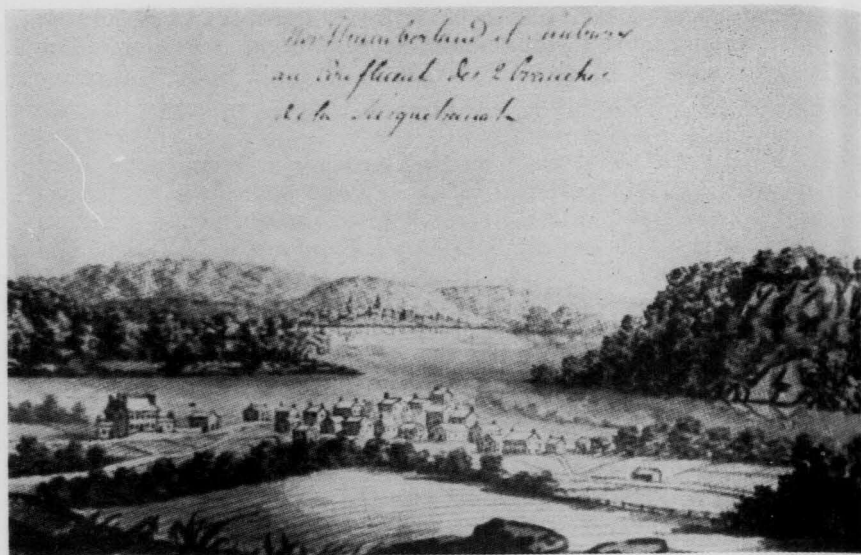 Northumberland et Sunbury
au Confluent des 2 branches
de la Susquehanah